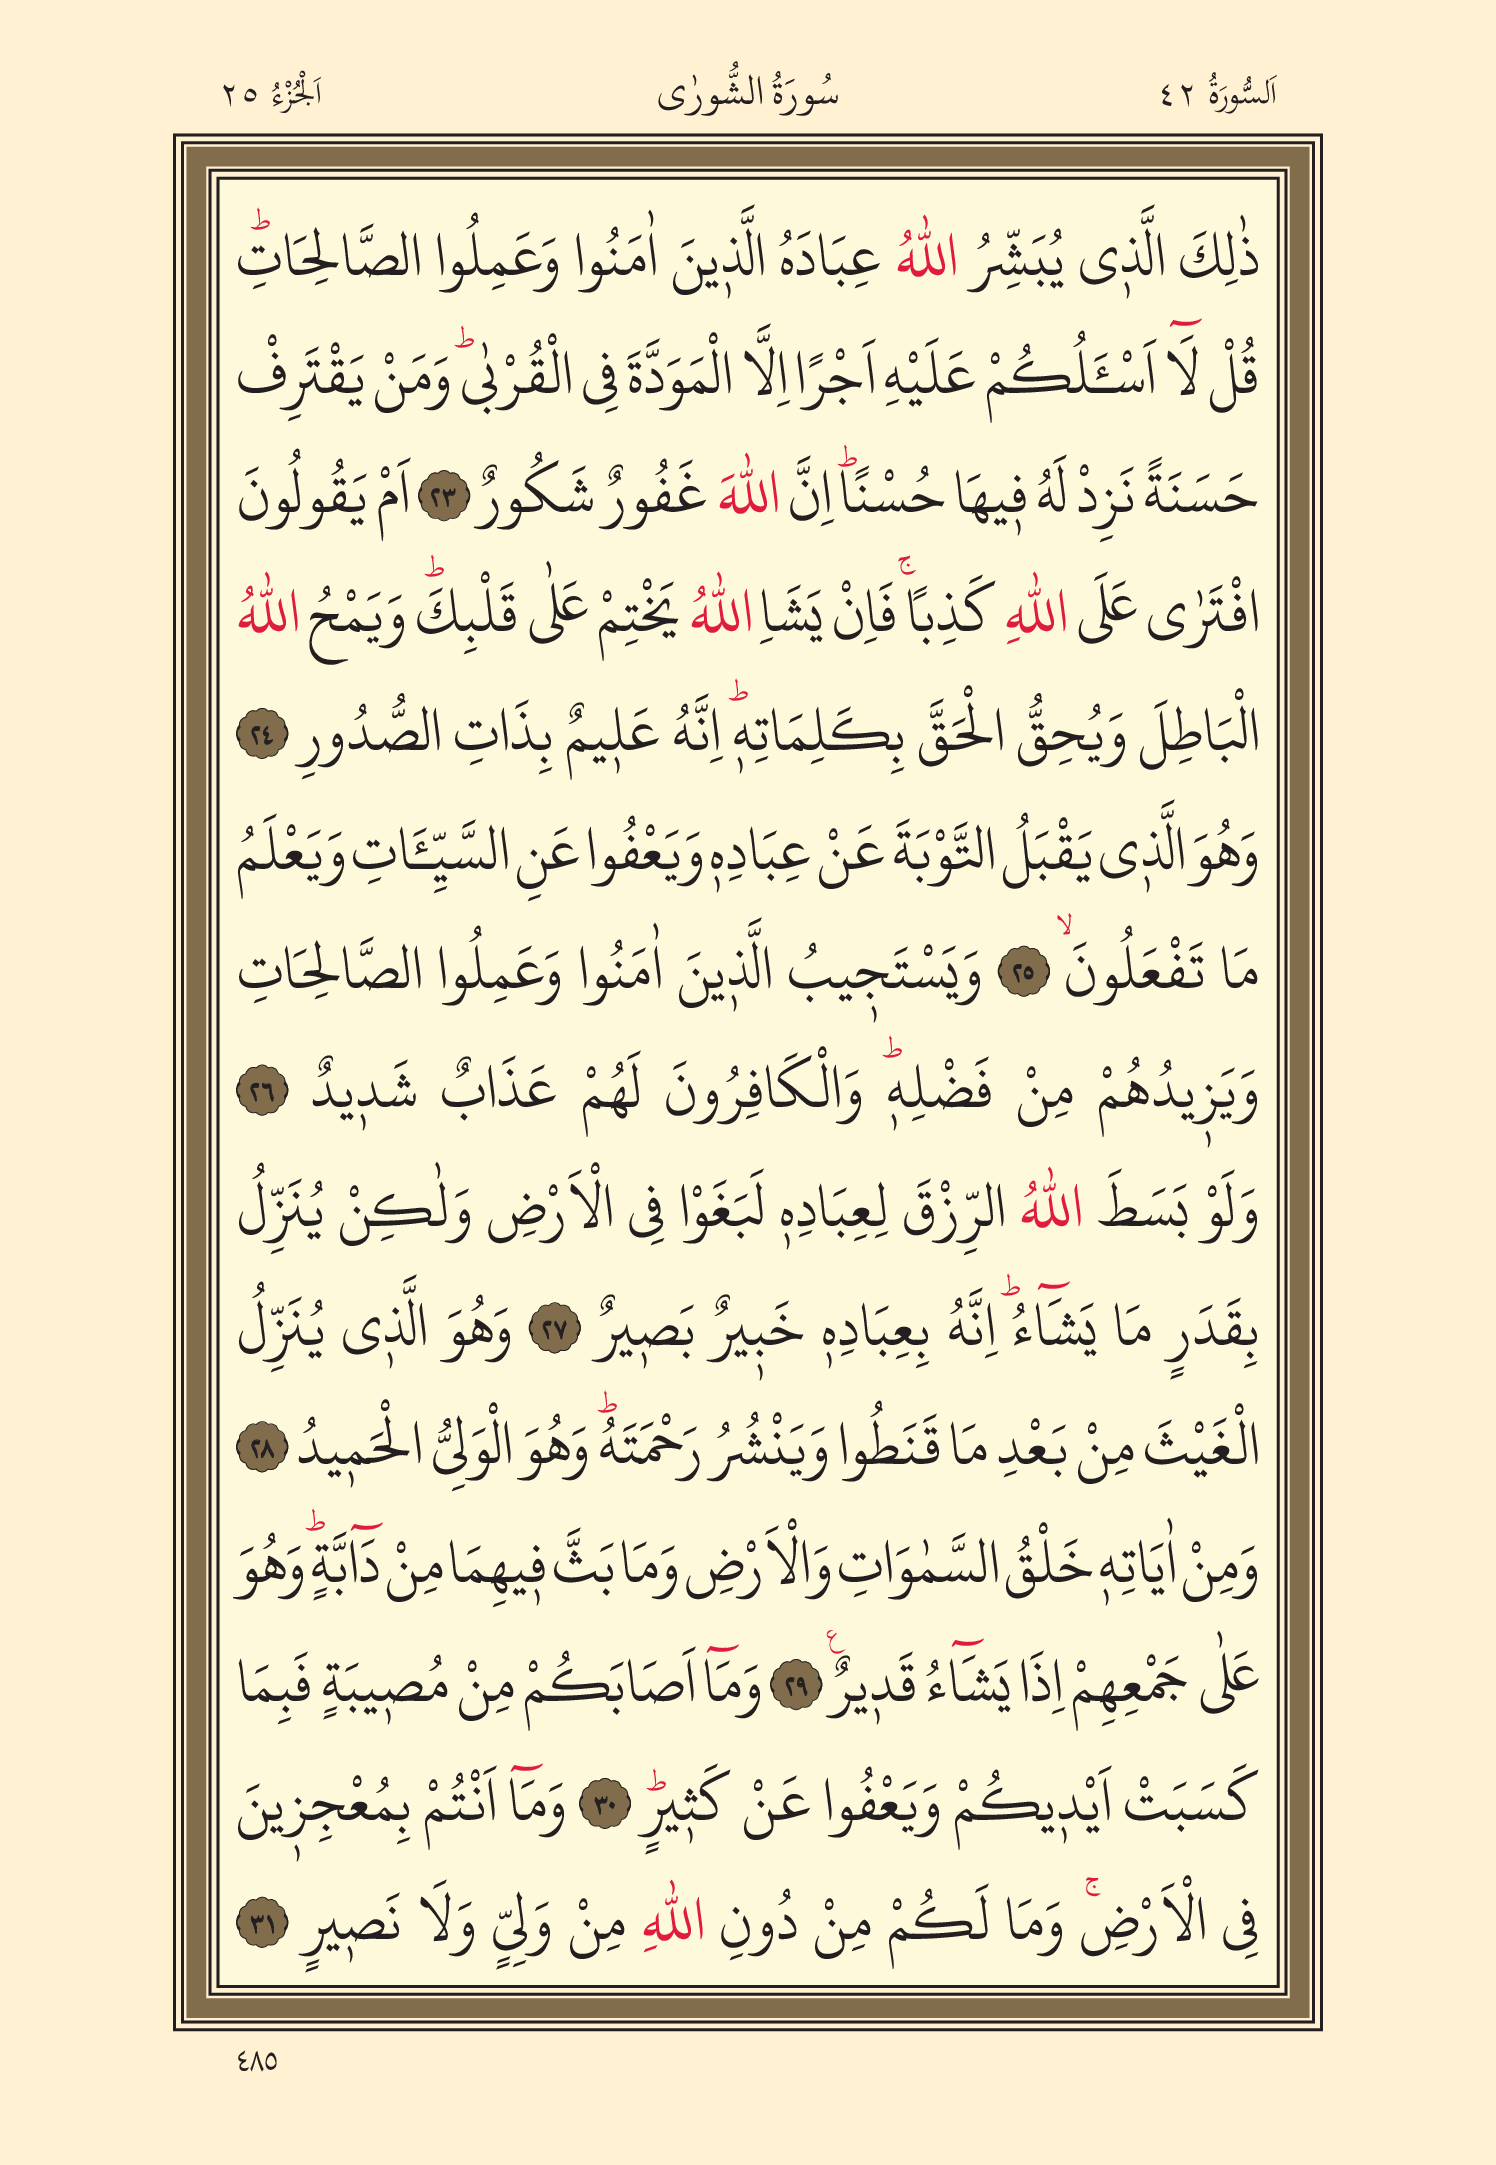 اَلسُّورَةُ ٤٢ سُورَةُ الشُّورٰى اَلْجُزْءُ ٢٥
ذٰلِكَ الَّذ۪ى يُبَشِّرُ اللّٰهُ عِبَادَهُ الَّذ۪ينَ اٰمَنُوا وَعَمِلُوا الصَّالِحَاتِۜ
قُلْ لَٓا اَسْـَٔلُكُمْ عَلَيْهِ اَجْرًا اِلَّا الْمَوَدَّةَ فِى الْقُرْبٰىۜ وَمَنْ يَقْتَرِفْ
حَسَنَةً نَزِدْ لَهُ ف۪يهَا حُسْنًاۜ اِنَّ اللّٰهَ غَفُورٌ شَكُورٌ ﴿٢٣﴾ اَمْ يَقُولُونَ
افْتَرٰى عَلَى اللّٰهِ كَذِبًاۚ فَاِنْ يَشَاِ اللّٰهُ يَخْتِمْ عَلٰى قَلْبِكَۜ وَيَمْحُ اللّٰهُ
الْبَاطِلَ وَيُحِقُّ الْحَقَّ بِكَلِمَاتِه۪ۜ اِنَّهُ عَل۪يمٌ بِذَاتِ الصُّدُورِ ﴿٢٤﴾
وَهُوَ الَّذ۪ى يَقْبَلُ التَّوْبَةَ عَنْ عِبَادِه۪ وَيَعْفُوا عَنِ السَّيِّـَٔاتِ وَيَعْلَمُ
مَا تَفْعَلُونَۙ ﴿٢٥﴾ وَيَسْتَج۪يبُ الَّذ۪ينَ اٰمَنُوا وَعَمِلُوا الصَّالِحَاتِ
وَيَز۪يدُهُمْ مِنْ فَضْلِه۪ۜ وَالْكَافِرُونَ لَهُمْ عَذَابٌ شَد۪يدٌ ﴿٢٦﴾
وَلَوْ بَسَطَ اللّٰهُ الرِّزْقَ لِعِبَادِه۪ لَبَغَوْا فِى الْاَرْضِ وَلٰكِنْ يُنَزِّلُ
بِقَدَرٍ مَا يَشَٓاءُۜ اِنَّهُ بِعِبَادِه۪ خَب۪يرٌ بَص۪يرٌ ﴿٢٧﴾ وَهُوَ الَّذ۪ى يُنَزِّلُ
الْغَيْثَ مِنْ بَعْدِ مَا قَنَطُوا وَيَنْشُرُ رَحْمَتَهُۜ وَهُوَ الْوَلِىُّ الْحَم۪يدُ ﴿٢٨﴾
وَمِنْ اٰيَاتِه۪ خَلْقُ السَّمٰوَاتِ وَالْاَرْضِ وَمَا بَثَّ ف۪يهِمَا مِنْ دَٓابَّةٍۜ وَهُوَ
عَلٰى جَمْعِهِمْ اِذَا يَشَٓاءُ قَد۪يرٌ۟ ﴿٢٩﴾ وَمَٓا اَصَابَكُمْ مِنْ مُص۪يبَةٍ فَبِمَا
كَسَبَتْ اَيْد۪يكُمْ وَيَعْفُوا عَنْ كَث۪يرٍۜ ﴿٣٠﴾ وَمَٓا اَنْتُمْ بِمُعْجِز۪ينَ
فِى الْاَرْضِۚ وَمَا لَكُمْ مِنْ دُونِ اللّٰهِ مِنْ وَلِىٍّ وَلَا نَص۪يرٍ ﴿٣١﴾
٤٨٥